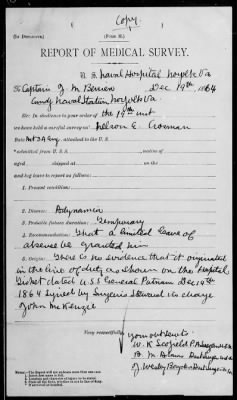 Copy.
(IN DUPLICATE.)
(FORM H.)
REPORT OF MEDICAL SURVEY.
U. S. Naval Hospital Norfolk Va
Dec 19th, 1864
To Captain J. M. Berrien
Comdg Naval Station Norfolk Va
SIR: In obedience to your order of the 19th inst
we have held a careful survey on Nelson E. Crosman
attached to the U. S.
admitted from U. S. S. , native of
aged , shipped at , on the
and beg leave to report as follows:
1. Present condition:
2. Disease: Adynamia
3. Probable future duration: Temporary
4. Recommendation: That a limited leave of
absence be granted him
5. Origin: There is no evidence that it originated
in the line of duty as shown on the Hospital
Ticket dated U.S.S General Putnam Dec 14th
1864 signed by Surgeon's Steward in charge
John McKenzie
Very respectfully,
your obt servts
W. K. Scofield P.A. Surg U.S.N.
B. M.
J. Wesley